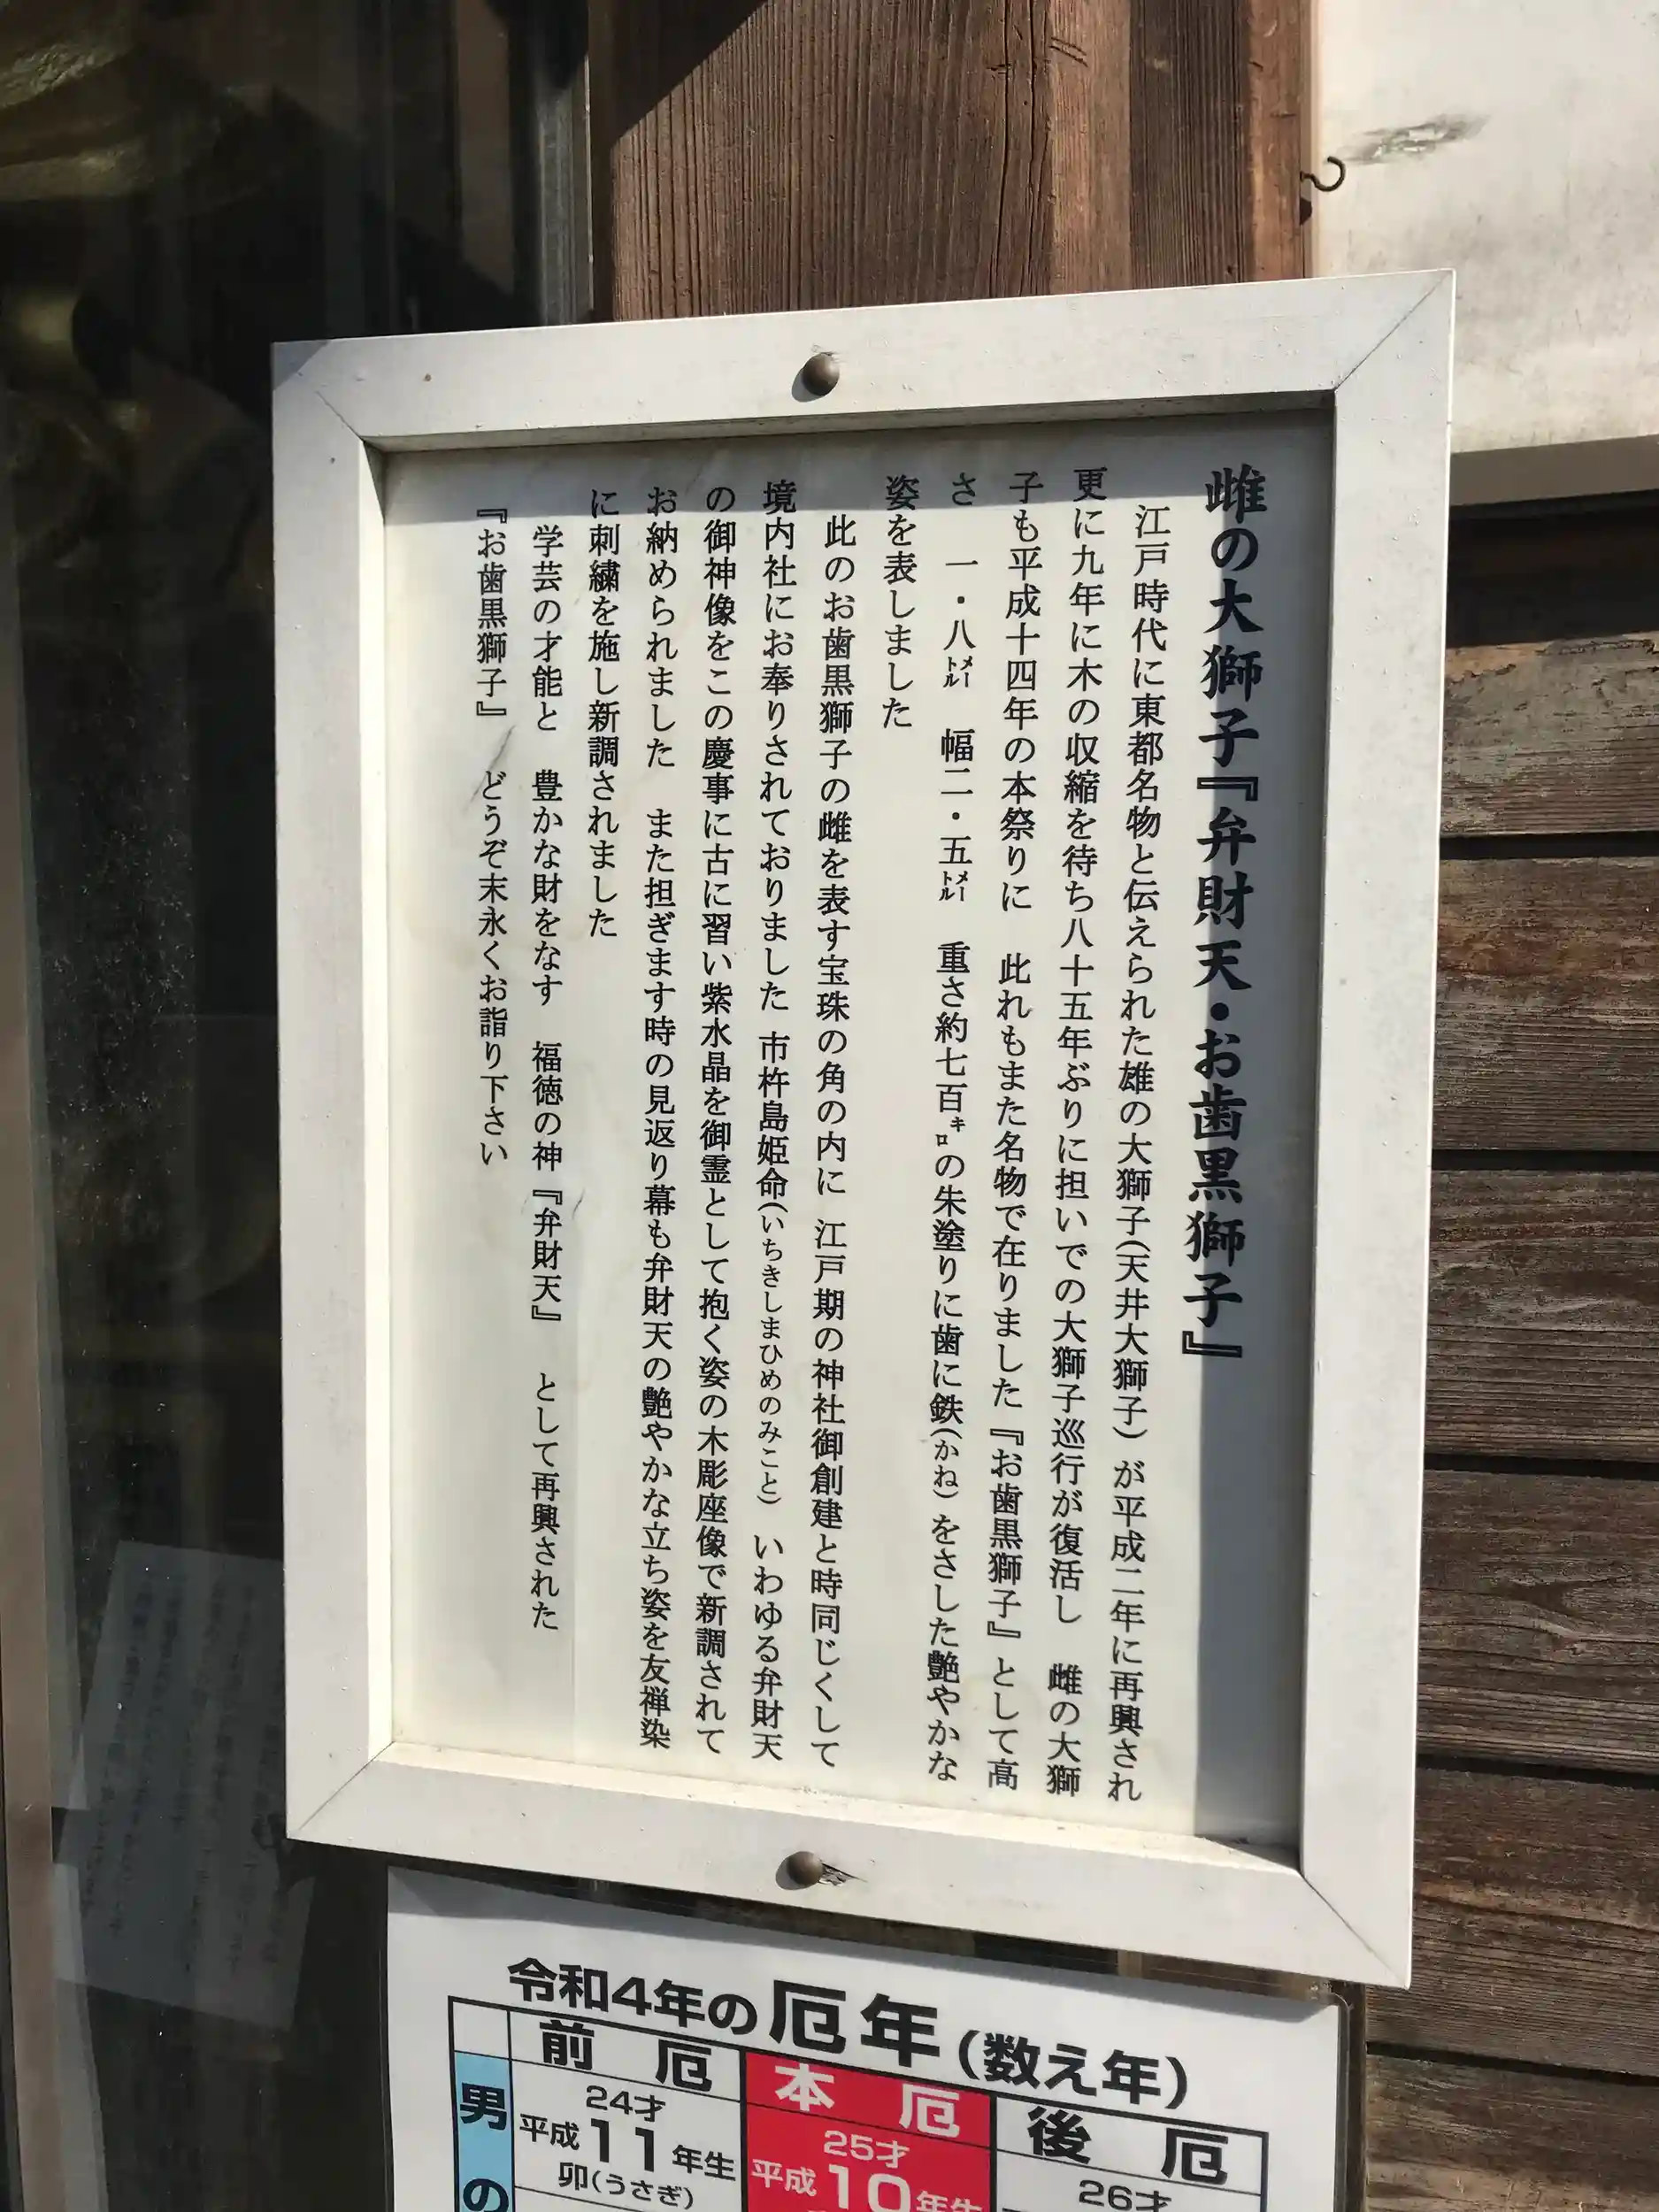 雌の大獅子『弁財天・お歯黒獅子』
江戸時代に東都名物と伝えられた雄の大獅子(天井大獅子)が平成二年に再興され
更に九年に木の収縮を待ち八十五年ぶりに担いでの大獅子巡行が復活し　雌の大獅
子も平成十四年の本祭りに　此れもまた名物で在りました『お歯黒獅子』として高
さ　一・八メートル　幅二・五メートル　重さ約七百キロの朱塗りに歯に鉄(かね)をさした艶やかな
姿を表しました
此のお歯黒獅子の雌を表す宝珠の角の内に　江戸期の神社御創建と時同じくして
境内社にお奉りされておりました　市杵島姫命(いちきしまひめのみこと)　いわゆる弁財天
の御神像をこの慶事に古に習い紫水晶を御霊として抱く姿の木彫座像で新調されて
お納められました　また担ぎます時の見返り幕も弁財天の艶やかな立ち姿を友禅染
に刺繍を施し新調されました
学芸の才能と　豊かな財をなす　福徳の神『弁財天』　として再興された
『お歯黒獅子』　どうぞ末永くお詣り下さい
令和4年の厄年(数え年)
前厄 本厄 後厄
男の
24才 25才 26才
平成11年生 平成10年生
卯(うさぎ)